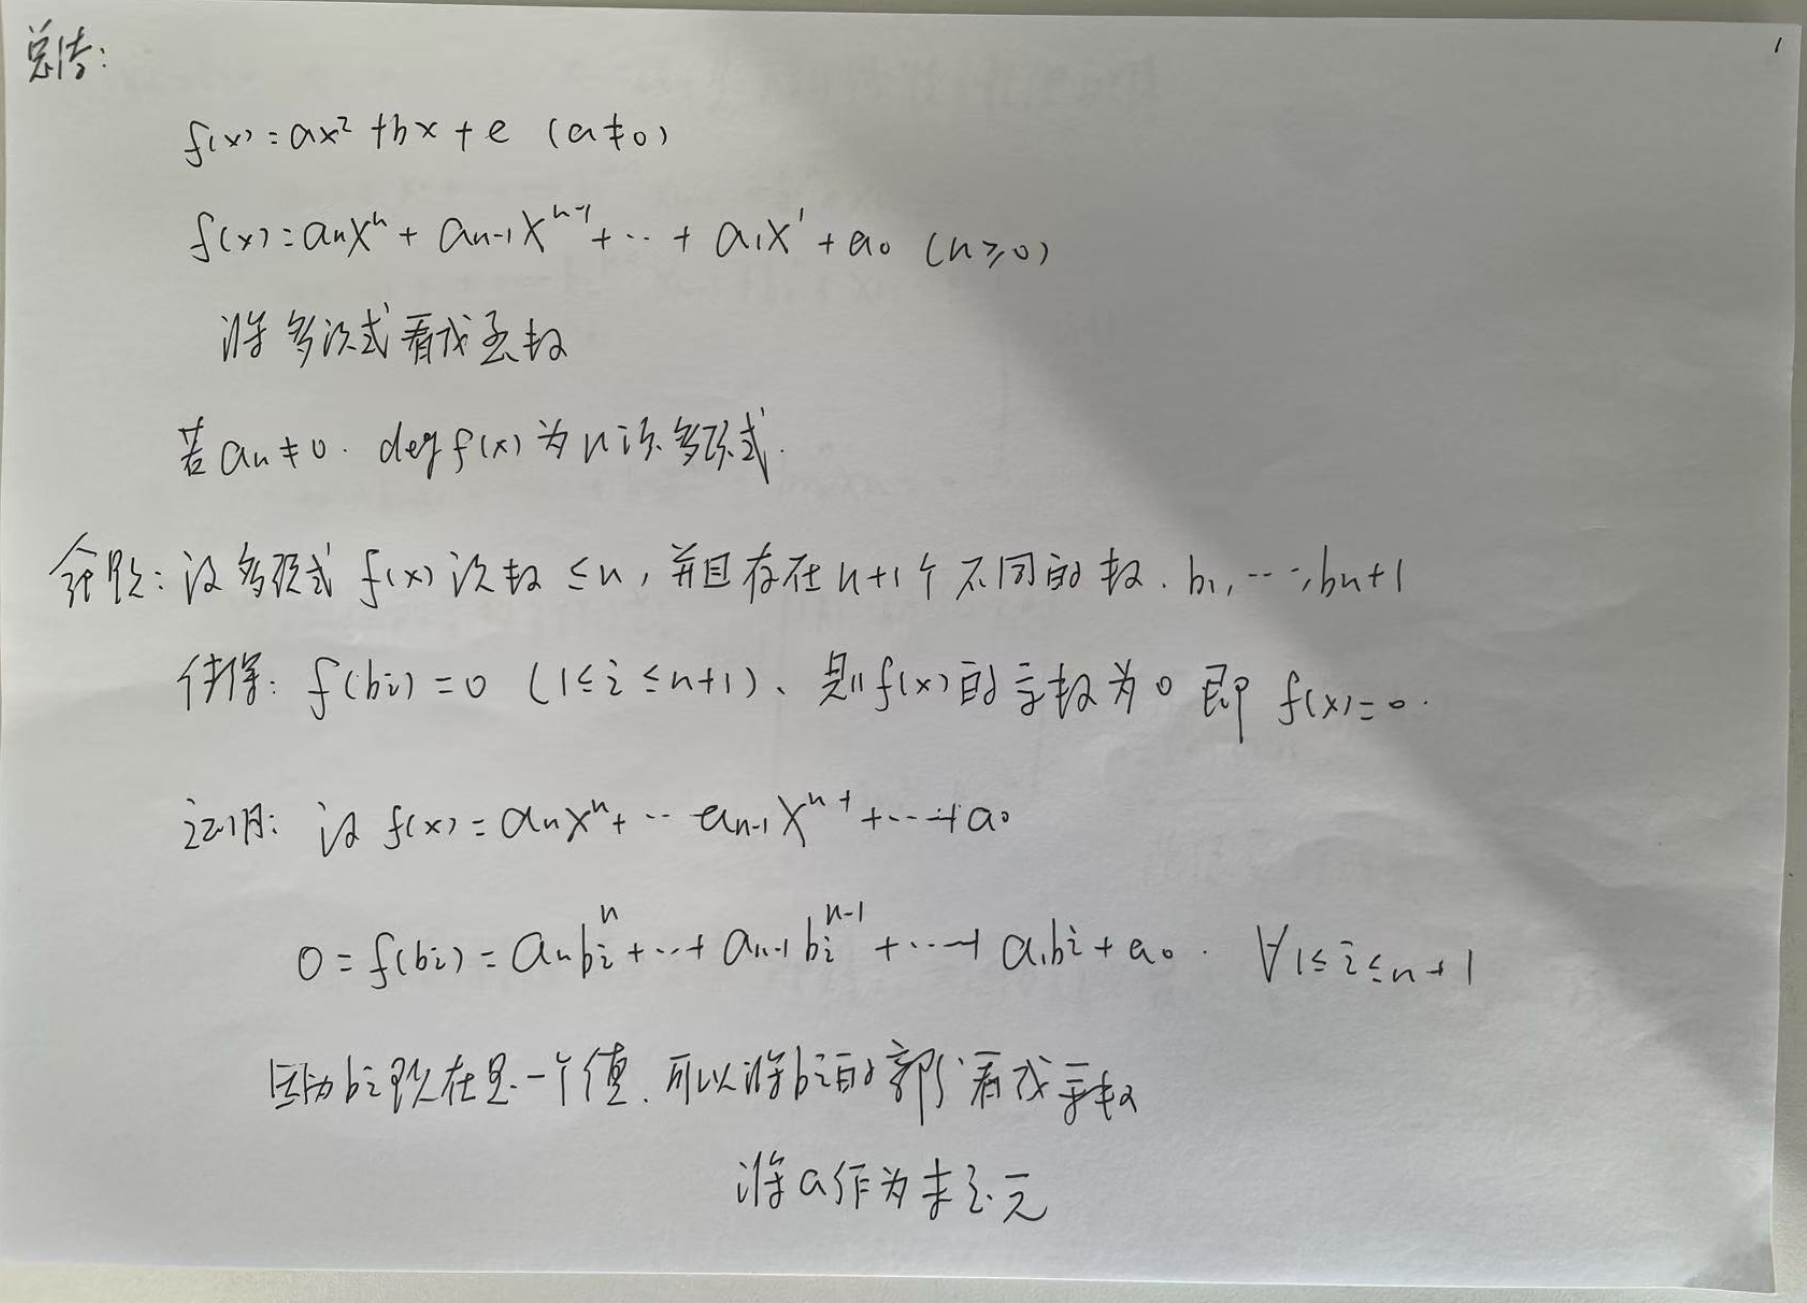 总结:
1
f(x)=ax²+bx+e (a≠0)
f(x)=aₙxⁿ+aₙ₋₁xⁿ⁻¹+⋯+a₁x¹+a₀ (n≥0)
将多次式看成函数
若aₙ≠0. deg f(x)为n次多项式.
命题:设多项式 f(x)次数≤n,并且存在n+1个不同的数.b₁,⋯,bₙ+1
使得: f(bᵢ)=0 (1≤i≤n+1)、则f(x)的系数为0 即 f(x)=0.
证明: 设 f(x)=aₙxⁿ+⋯aₙ₋₁xⁿ⁻¹+⋯+a₀
0=f(bᵢ)=aₙbᵢⁿ+⋯+aₙ₋₁bᵢⁿ⁻¹+⋯+a₁bᵢ+a₀. ∀1≤i≤n+1
因为bᵢ现在是一个值.可以将bᵢ的部分看成系数
将a作为未知元